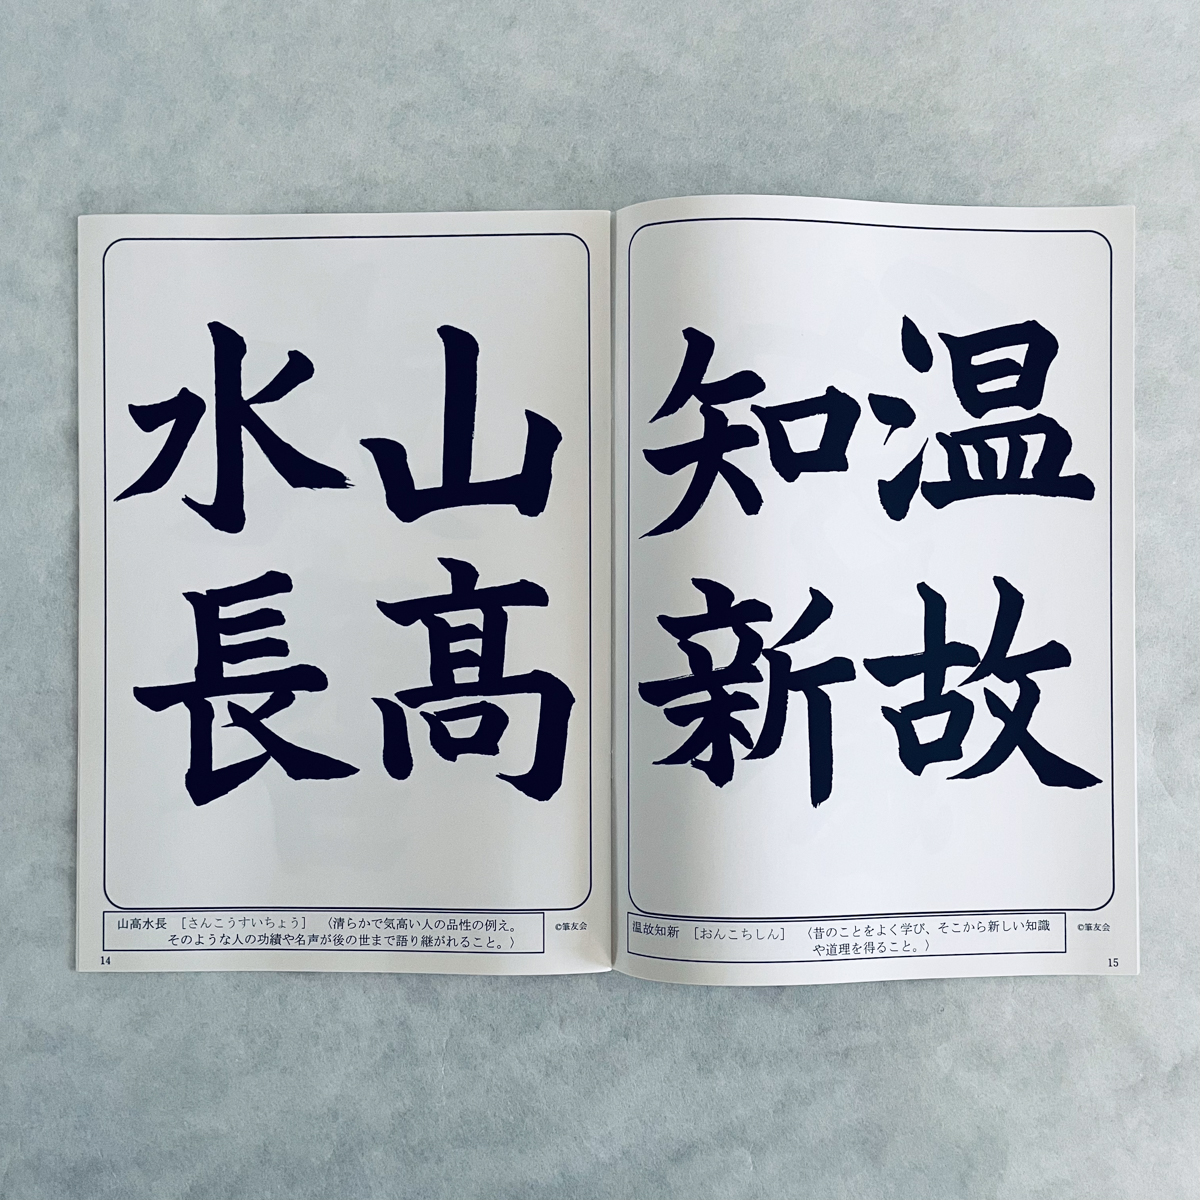 山髙
水長
山高水長 [さんこうすいちょう] 〈清らかで気高い人の品性の例え。
そのような人の功績や名声が後の世まで語り継がれること。〉
©筆友会
14
温故
知新
温故知新 [おんこちしん] 〈昔のことをよく学び、そこから新しい知識
や道理を得ること。〉
©筆友会
15